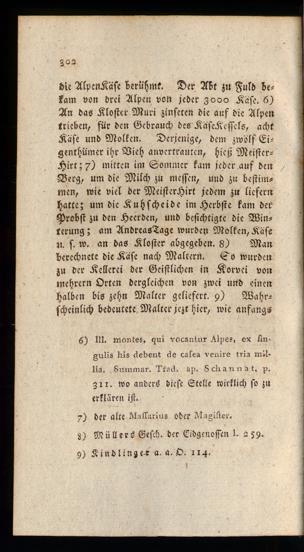 302
die AlpenKäse berühmt. Der Abt zu Fuld be-
kam von drei Alpen von jeder 3000 Käse. 6)
An das Kloster Muri zinseten die auf die Alpen
trieben, für den Gebrauch des KäseKessels, acht
Käse und Molken. Derjenige, dem zwölf Ei-
genthümer ihr Vieh anvertrauten, hieß Meister-
Hirt; 7) mitten im Sommer kam jeder auf den
Berg, um die Milch zu messen, und zu bestim-
men, wie viel der MeisterHirt jedem zu liefern
hatte; um die Kuhscheide im Herbste kam der
Probst zu den Heerden, und besichtigte die Win-
terung; am AndreasTage wurden Molken, Käse
u. s. w. an das Kloster abgegeben. 8) Man
berechnete die Käse nach Maltern. So wurden
zu der Kellerei der Geistlichen in Korvei von
mehrern Orten dergleichen von zwei und einen
halben bis zehn Malter geliefert. 9) Wahr-
scheinlich bedeutete Malter jezt hier, wie anfangs
6) III. montes, qui vocantur Alpes, ex sin-
gulis his debent de casea venire tria mil-
lia. Summar. Trad. ap. Schannat, p.
311. wo anders diese Stelle wirklich so zu
erklären ist.
7) der alte Massarius oder Magister.
8) Müllers Gesch. der Eidgenossen I. 259.
9) Kindlinger a. a. O. 114.